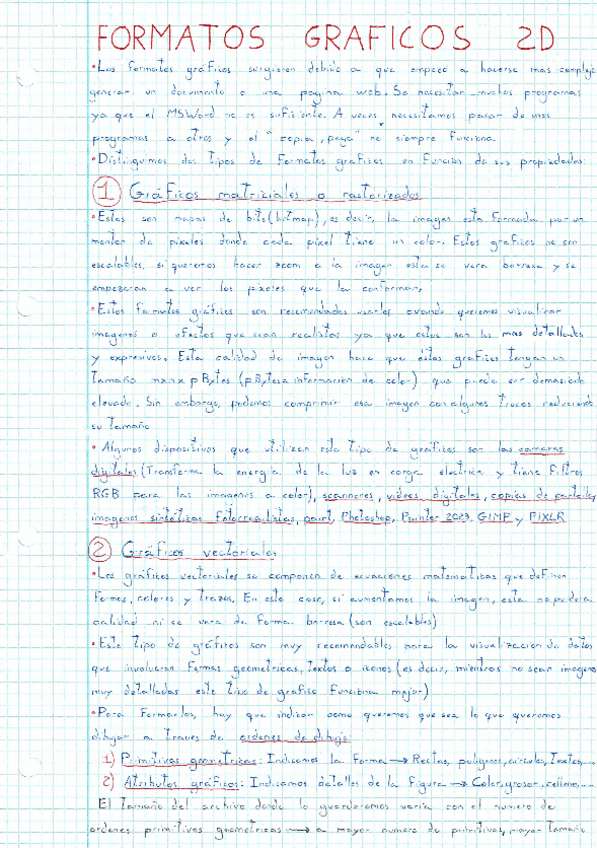 FORMATOS GRAFICOS 2D
• Los formatos gráficos surgieron debido a que empezó a hacerse mas complejo
generar un documento o una pagina web. Se necesitan muchos programas
ya que el MSWord no es suficiente. A veces, necesitamos pasar de unos
programas a otros y el "copia, pega" no siempre funciona.
• Distinguimos dos tipos de formatos graficos en funcion de sus propiedades:
1 Gráficos matriciales o rasterizados
• Estos son mapas de bits (bitmap), es decir, la imagen esta formada por un
monton de pixeles donde cada pixel tiene un color. Estos graficos no son
escalables, si queremos hacer zoom a la imagen, esta se vera borrosa y se
empezaran a ver los pixeles que la conforman,
• Estos formatos gráficos son recomendados usarlos cuando queremos visualizar
imagenes o efectos que sean realistas ya que estos son los mas detallados
y expresivos. Esta calidad de imagen hace que estos graficos tengan un
tamaño nxnxpBytes (pBytes=informacion de color) que puede ser demasiado
elevado. Sin embargo, podemos comprimir esa imagen con algunos trucos reduciendo
su tamaño
• Algunos dispositivos que utilizan este tipo de gráficos son las camaras
digitales (Transforma la energia de la luz en carga electrica y tiene filtros
RGB para las imagenes a color), scanneres, videos digitales, copias de pantallas,
imagenes sintéticas fotorrealistas, paint, Photoshop, Painter 2023, GIMP y PIXLR
2 Gráficos vectoriales
• Los gráficos vectoriales se componen de ecuaciones matematicas que definen
formas, colores y trazos. En este caso, si aumentamos la imagen, esta no pierde
calidad ni se vera de forma borrosa (son escalables)
• Este tipo de gráficos son muy recomendables para la visualizacion de datos
que involucran formas geometricas, textos o iconos (es decir, mientras no sean imagenes
muy detalladas este tipo de grafico funciona mejor)
• Para formarlos, hay que indicar como queremos que sea lo que queremos
dibujar a traves de ordenes de dibujo:
1) Primitivas geometricas: Indicamos la forma → Rectas, poligonos, circulos, Textos,...
2) Atributos gráficos: Indicamos detalles de la figura → Color, grosor, relleno,...
El tamaño del archivo donde lo guardaremos varia con el numero de
ordenes primitivas geometricas → a mayor numero de primitivas, mayor tamaño